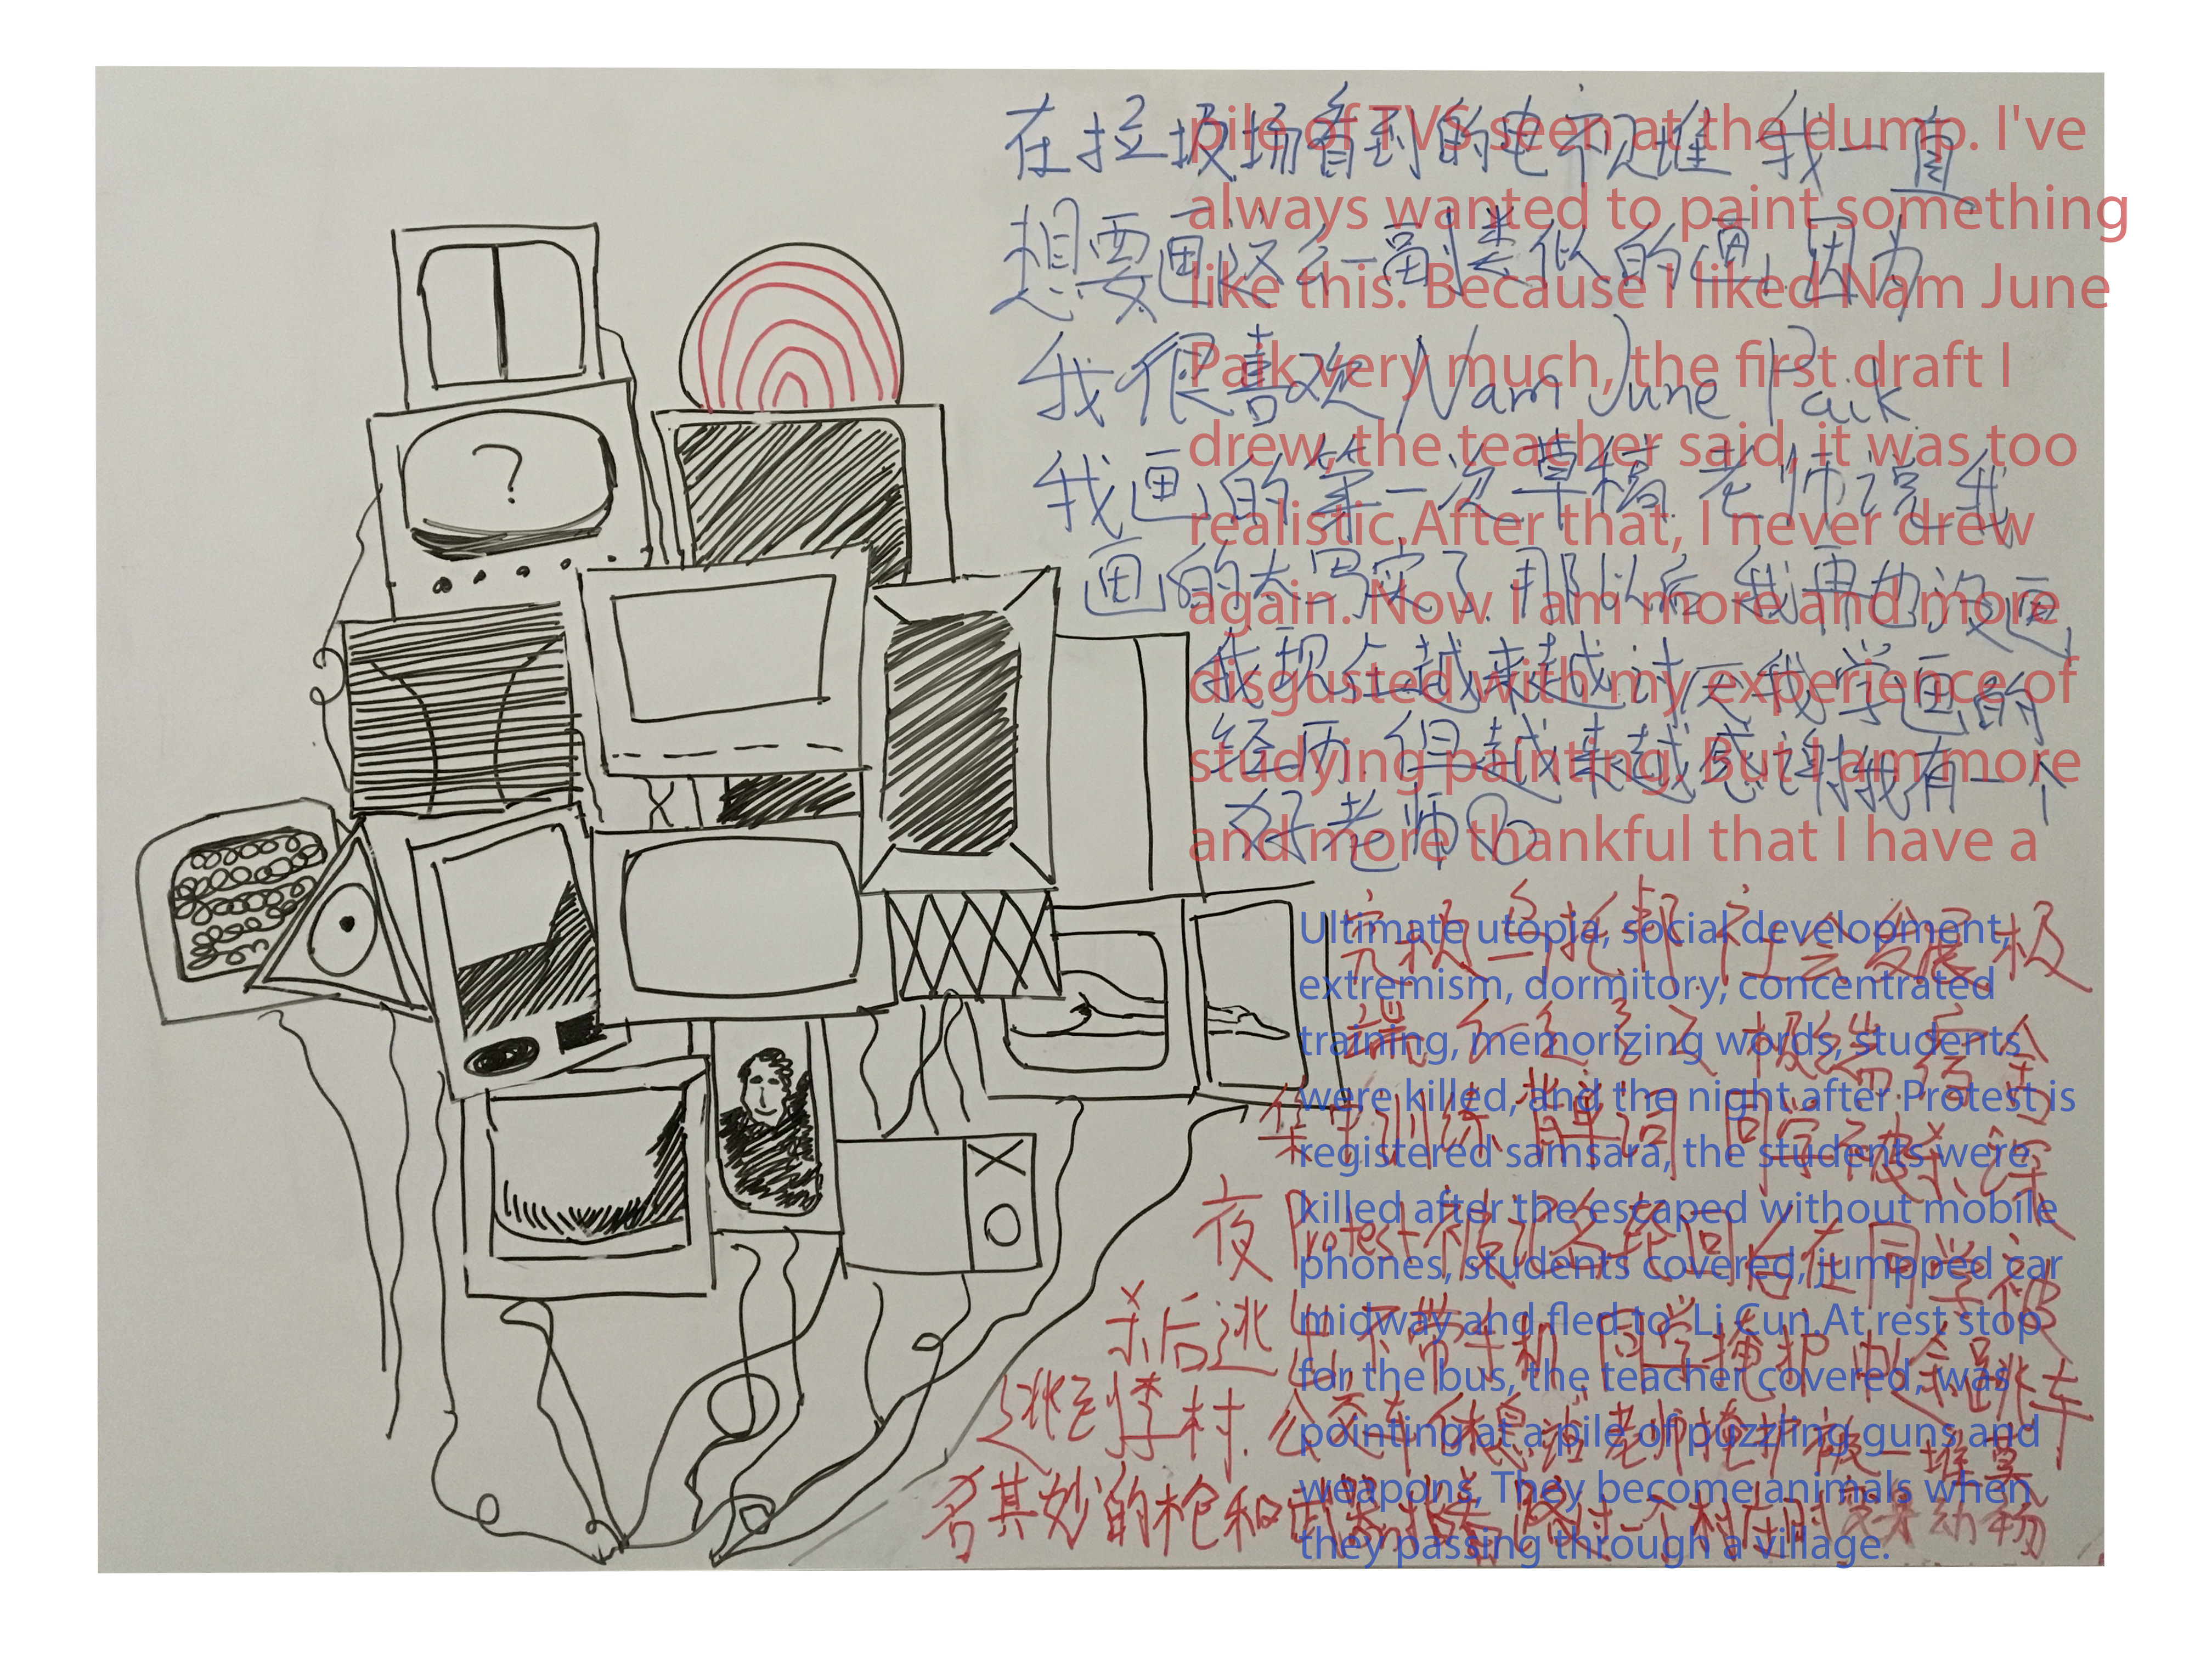 在垃圾场看到的电视堆 我一直
想要画这么一副类似的画,因为
我很喜欢 Nam June Paik
我画的第一次草稿 老师说我
画的太写实了.那以后 我再也没画,
我现在越来越讨厌我学画的
经历.但越来越感谢我有一个
好老师
pile of TVS seen at the dump. I've
always wanted to paint something
like this. Because I liked Nam June
Paik very much, the first draft I
drew, the teacher said, it was too
realistic.After that, I never drew
again. Now I am more and more
disgusted with my experience of
studying painting. But I am more
and more thankful that I have a
?
X
O
究极乌托邦 社会发展极
端 极端 宿舍
集中训练、背单词 同学被杀、深
夜Protest 被记名轮回后在同学被
杀后逃出 不带手机 同学掩护 中途跳车
逃到李村.公交车休息站老师掩护 被一堆莫
名其妙的枪和武器指着 路过一个村庄时变成动物
Ultimate utopia, social development,
extremism, dormitory, concentrated
training, memorizing words, students
were killed, and the night after Protest is
registered samsara, the students were
killed after the escaped without mobile
phones, students covered, jumpped car
midway and fled to Li Cun.At rest stop
for the bus, the teacher covered, was
pointing at a pile of puzzling guns and
weapons, They become animals when
they passing through a village.